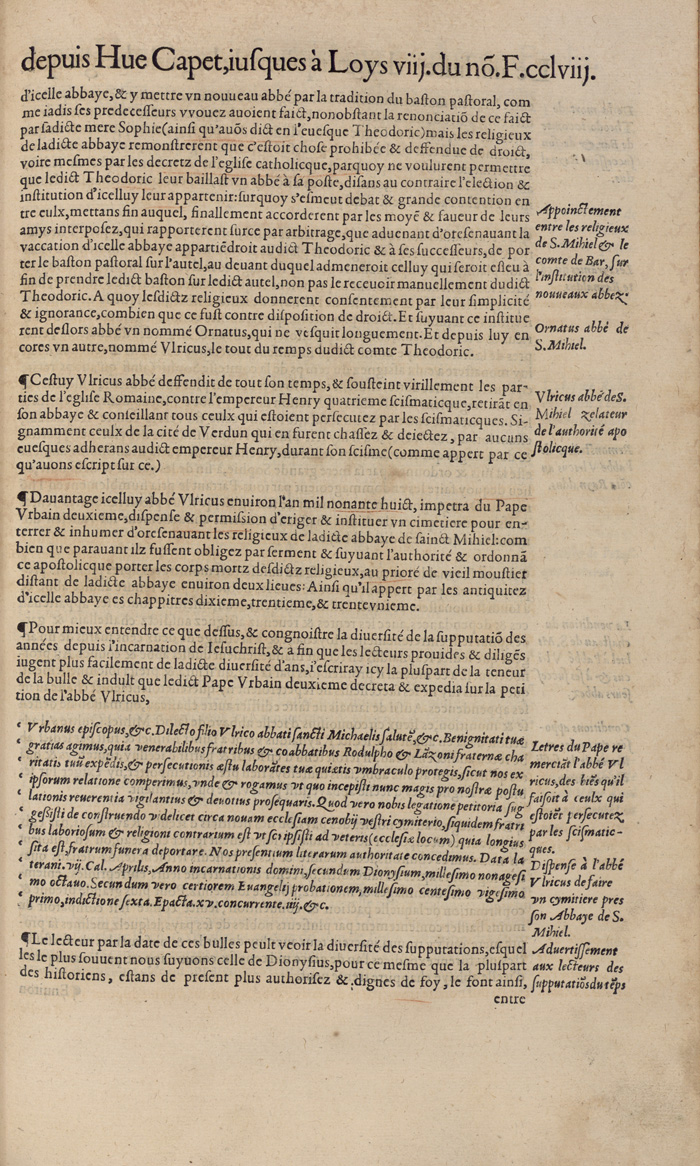 depuis Hue Capet,iuſques à Loys viij.du nõ.F.cclviij.
d'icelle abbaye,& y mettre vn nouueau abbé par la tradition du baſton paſtoral, com
me iadis ſes predeceſſeurs vvouez auoient faict,nonobſtant la renonciatiõ de ce faict
par ſadicte mere Sophie(ainſi qu'auõs dict en l'eueſque Theodoric)mais les religieux
de ladicte abbaye remonſtrerent que c'eſtoit choſe prohibée & deffendue de droict,
voire meſmes par les decretz de l'egliſe catholicque,parquoy ne voulurent permettre
que ledict Theodoric leur baillaſt vn abbé à ſa poſte,diſans au contraire l'election &
inſtitution d'icelluy leur appartenir:ſurquoy s'eſmeut debat & grande contention en
tre eulx,mettans fin auquel, finallement accorderent par les moyẽ & faueur de leurs
amys interpoſez,qui rapporterent ſurce par arbitrage,que aduenant d'oreſenauant la
vaccation d'icelle abbaye appartiẽdroit audict Theodoric & à ſes ſucceſſeurs,de por
ter le baſton paſtoral ſur l'autel,au deuant duquel admeneroit celluy qui ſeroit eſleu à
fin de prendre ledict baſton ſur ledict autel,non pas le receuoir manuellement dudict
Theodoric.A quoy leſdictz religieux donnerent conſentement par leur ſimplicité
& ignorance,combien que ce fuſt contre diſpoſition de droict. Et ſuyuant ce inſtitue
rent deſlors abbé vn nommé Ornatus,qui ne veſquit longuement.Et depuis luy en
cores vn autre,nommé Vlricus,le tout du temps dudict comte Theodoric.
Appoinctement
entre les religieux
de S.Mihiel& le
comte de Bar, ſur
l'inſtitution des
nouueaux abbez.
Ornatus abbé de
S.Mihiel.
¶Ceſtuy Vlricus abbé deffendit de tout ſon temps,& ſouſteint virillement les par-
ties de l'egliſe Romaine,contre l'empereur Henry quatrieme ſciſmaticque,retirãt en
ſon abbaye & conſeillant tous ceulx qui eſtoient perſecutez par les ſciſmaticques. Si-
gnamment ceulx de la cité de Verdun qui en furent chaſſez & deiectez, par aucuns
eueſques adherans audict empereur Henry,durant ſon ſciſme(comme appert par ce
qu'auons eſcript ſur ce.)
Vlricus abbé de S.
Mihiel zelateur
de l'authorité apo
ſtolicque.
¶Dauantage icelluy abbé Vlricus enuiron l'an mil nonante huict, impetra du Pape
Vrbain deuxieme,diſpenſe & permiſſion d'eriger & inſtituer vn cimetiere pour en-
terrer & inhumer d'oreſenauant les religieux de ladicte abbaye de ſainct Mihiel:com
bien que parauant ilz fuſſent obligez par ſerment & ſuyuant l'authorité & ordonnã
ce apoſtolicque porter les corps mortz deſdictz religieux,au prioré de vieil mouſtier
diſtant de ladicte abbaye enuiron deux lieues: Ainſi qu'il appert par les antiquitez
d'icelle abbaye es chappitres dixieme,trentieme,& trentevnieme.
¶Pour mieux entendre ce que deſſus,& congnoiſtre la diuerſité de la ſupputatiõ des
années depuis l'incarnation de Ieſuchriſt,& à fin que les lecteurs prouides & diligẽs
iugent plus facilement de ladicte diuerſité d'ans,i'eſcriray icy la pluſpart de la teneur
de la bulle & indult que ledict Pape Vrbain deuxieme decreta & expedia ſur la peti
tion de l'abbé Vlricus,
Vrbanus epiſcopus,&c.Dilecto filio Vlrico abbati ſancti Michaelis ſalutẽ,&c.Benignitati tuæ
gratias agimus,quia venerabilibus fratribus & coabbatibus Rodulpho & Lãzoni fraternæ cha
ritatis tuũ expẽdis,& perſecutionis æſtu laborãtes tuæ quiætis vmbraculo protegis,ſicut nos ex
ipſorum relatione comperimus,vnde & rogamus vt quo incepiſti nunc magis pro noſtræ poſtu
lationis reuerentia vigilantius & deuotius proſequaris.Quod vero nobis legatione petitoria ſug
geſſiſti de conſtruendo videlicet circa nouam eccleſiam cenobij veſtri cymiterio,ſiquidem fratri
bus laborioſum & religioni contrarium eſt vt ſci ipſiſti ad veteris(eccleſiæ locum) quia longius
ſita eſt,fratrum funera deportare. Nos preſentium literarum authoritate concedimus. Data la
terani.vij. Cal. Aprilis,Anno incarnationis domini,ſecundum Dionyſium,milleſimo nonageſi
mo octauo.Secundum vero certiorem Euangelij probationem,milleſimo centeſimo vigeſimo
primo,indictione ſexta.Epacta.xv.concurrente.iiij.&c.
Letres du Pape re
merciãt l'abbé Vl
ricus,des biẽs qu'il
faiſoit à ceulx qui
eſtoiẽt perſecutez
par les ſciſmatic-
ques.
Diſpenſe à l'abbé
Vlricus de faire
vn cymitiere pres
ſon Abbaye de S.
Mihiel.
¶Le lecteur par la date de ces bulles peult veoir la diuerſité des ſupputations,eſquel
les le plus ſouuent nous ſuyuons celle de Dionyſius,pour ce meſme que la pluſpart
des hiſtoriens, eſtans de preſent plus authoriſez & dignes de foy, le font ainſi,
Aduertiſſement
aux lecteurs des
ſupputatiõs du tẽps
entre